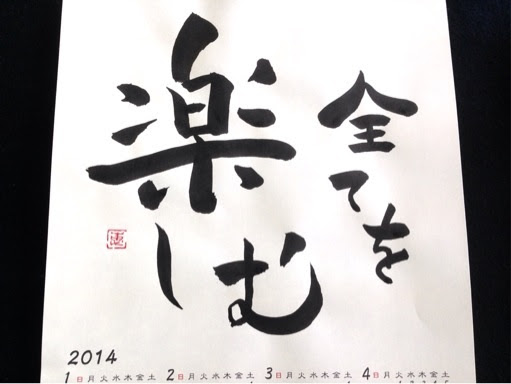 全てを
楽しむ
2014
1 日 月 火 水 木 金 土
2 日 月 火 水 木 金 土
3 日 月 火 水 木 金 土
4 日 月 火 水 木 金 土